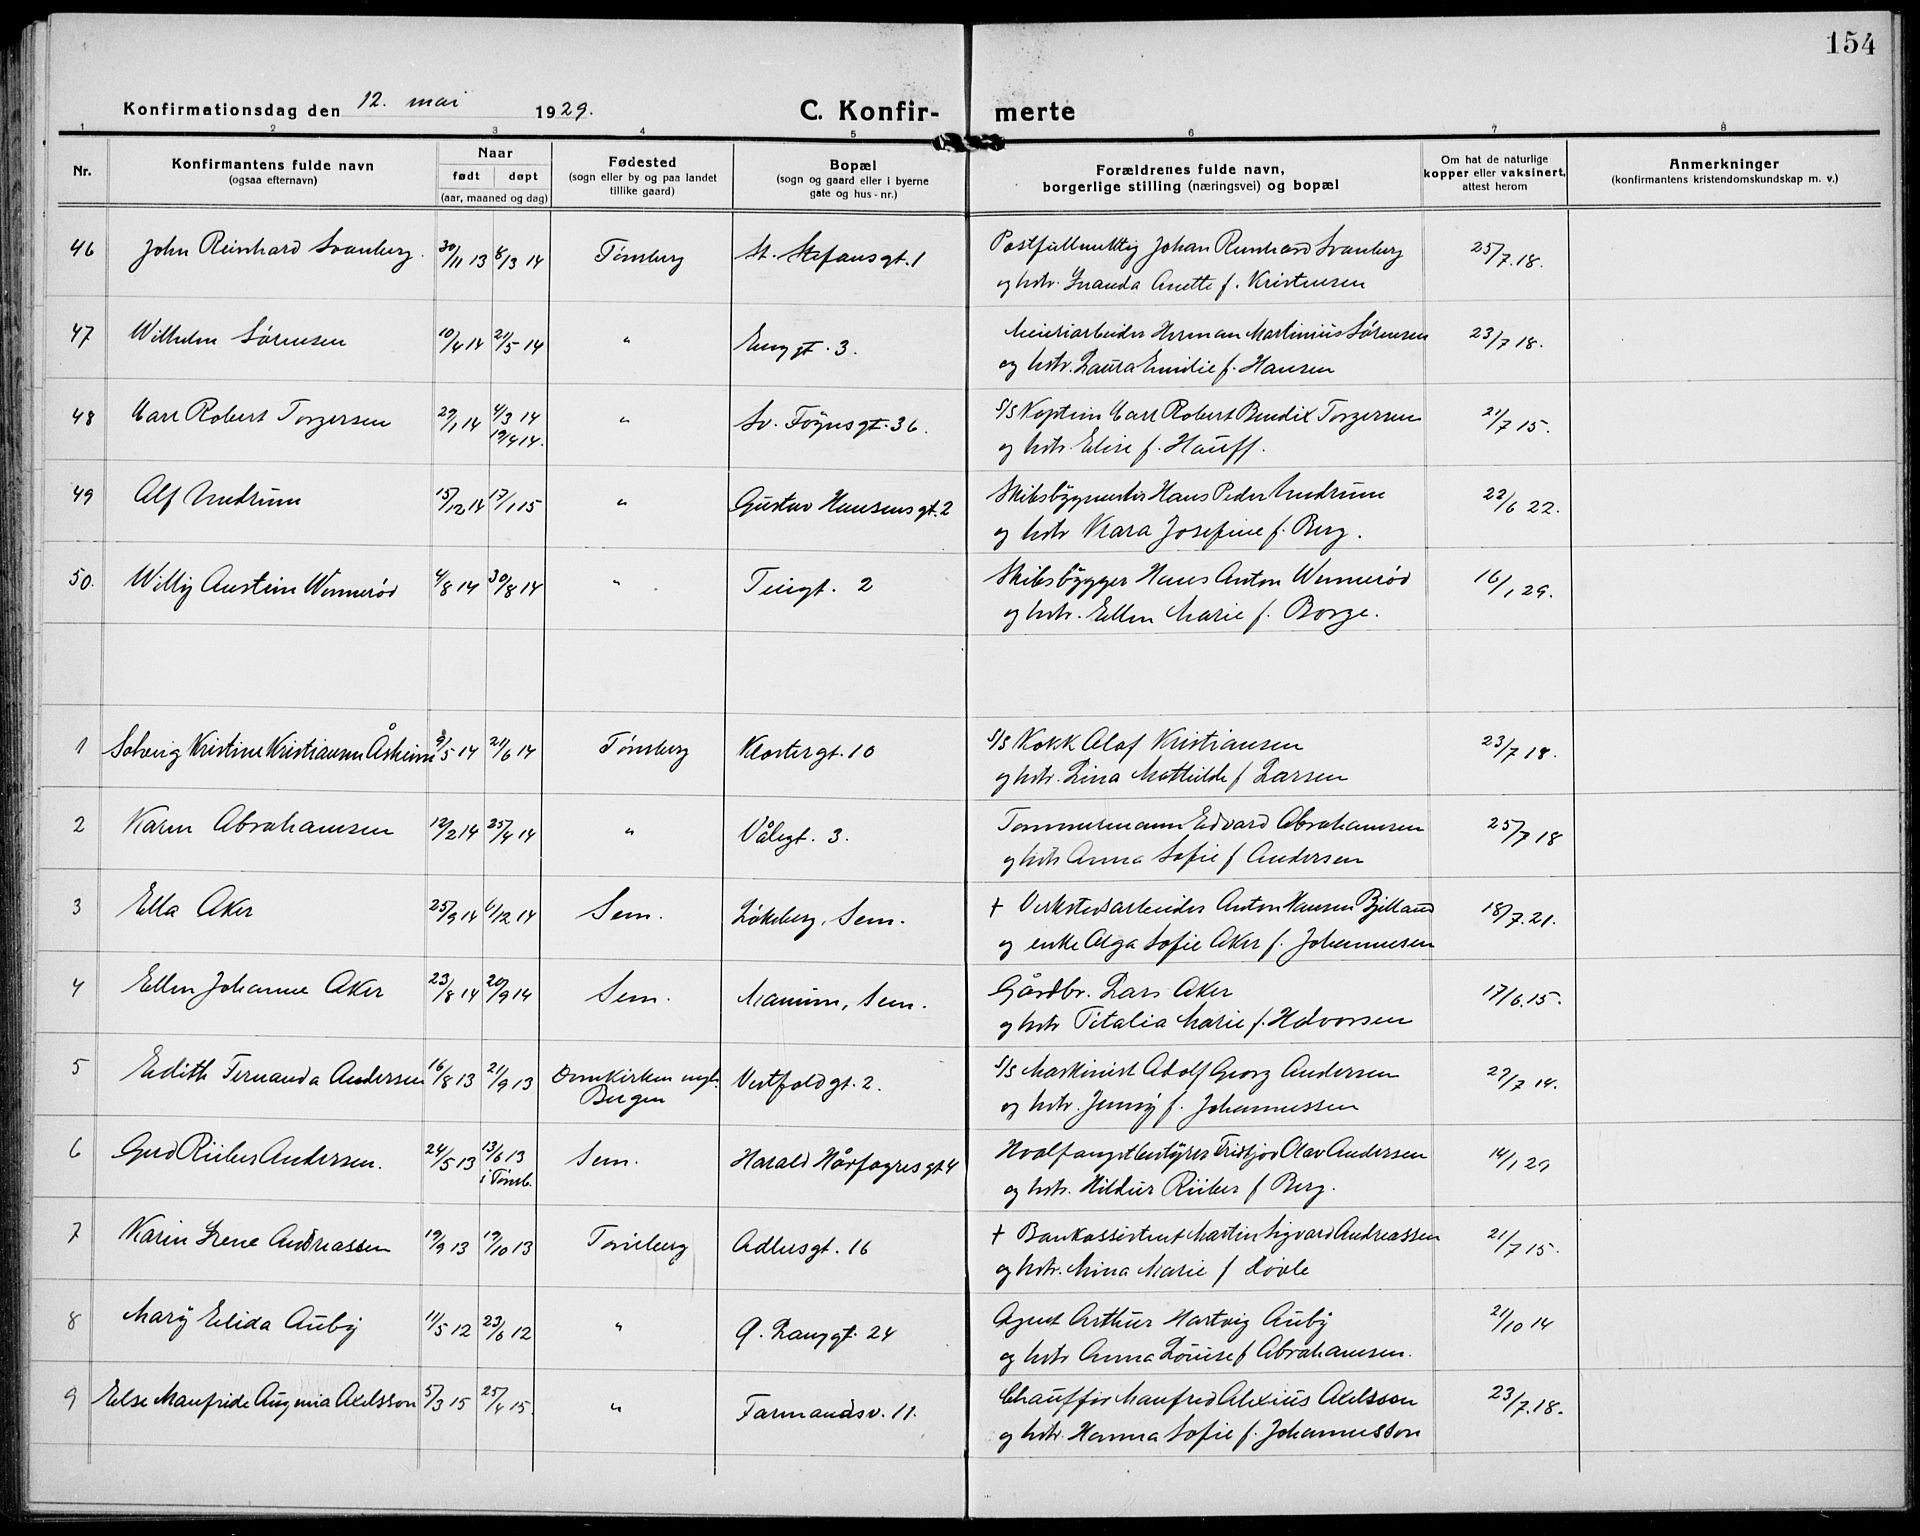 154
Konfirmationsdag den 12. mai 1929. C. Konfir- merte
1 2 3 4 5 6 7 8
Nr. Konfirmantens fulde navn (ogsaa efternavn) Naar født døpt (aar, maaned og dag) Fødested (sogn eller by og paa landet tillike gaard) Bopæl (sogn og gaard eller i byerne gate og hus-nr.) Forældrenes fulde navn, borgerlige stilling (næringsvei) og bopæl Om hat de naturlige kopper eller vaksinert, attest herom Anmerkninger (konfirmantens kristendomskundskap m. v.)
46 John Reinhard Svanberg. 30/11 13 8/3 14 Tønsberg St. Stefansgt. 1 Postfullmektig Johan Reinhard Svanberg 25/7.18.
og hstr. Anette f. Kristensen
47 Wilhelm Sørensen 10/4 14 21/5 14 " Enggt. 3. Meieriarbeider Herman Martinius Sørensen 23/7 18.
og hstr. Laura Emilie f. Hansen
48 Carl Robert Torgersen 29/1 14 4/3 14 " Sv. Føynsgt. 36. S/S Kaptein Carl Robert Bendix Torgersen 21/7 15.
19/4 14. og hstr. Elise f. Hauff.
49 Alf Undrum 15/12 14 17/1 15 " Gustav Hansensgt. 2 Skibsbygmester Hans Peder Undrum 22/6 22.
og hstr Klara Josefine f. Berg.
50. Willy Austein Wennerød 4/8 14 30/8 14 " Teiegt. 2 Skibsbygger Hans Anton Wennerød 16/1 29.
og hstr. Ellen Marie f. Borge.
1 Solveig Kristine Kristiansen Åsheim 9/5 14 21/6 14 Tønsberg Klostergt. 10 S/S Kokk Olaf Kristiansen 23/7 18.
og hstr. Lina Mathilde f Larsen
2 Karen Abrahamsen 12/2 14 25/4 14 " Vålegt. 3. Tømmermann Edvard Abrahamsen 25/7 18
og hstr Anna Sofie f Andersen
3 Ella Aker 25/9 14 6/12 14 Sem. Løkeberg, Sem. + Verkstedsarbeider Anton Hansen Bjelland 18/7.21.
og enke Olga Sofie Aker f. Johannesen
4 Ellen Johanne Aker 23/8 14 20/9 14 Sem. Manum, Sem. Gårdbr. Lars Aker 17/6.15.
og hstr Titalia Marie f. Halvorsen
5 Edith Fernanda Andersen 16/8 13 21/9 13 Domkirken Vestfoldgt. 2. S/S Maskinist Adolf Georg Andersen 27/7 14.
Bergen og hstr. Jenny f. Johannessen
6 Gerd Riiber Andersen. 24/5 13 13/6 13 Sem. Harald Hårfagresgt. 4 Hvalfangstbestyrer Fridtjov Olav Andersen 14/1 29
i Tønsb. og hstr. Hildur Riiber f Berg.
7 Karin Irene Andreassen 19/9 13 19/10 13 Tønsberg Adlersgt. 16 + Bankassistent Martin Sigvard Andreassen 21/7 15.
og hstr. Mina Marie f Løvle
8 Mary Elida Auby 11/5 12 23/6 12 " Ø. Langgt. 24 Agent Arthur Hartvig Auby 21/10 14
og hstr Anna Louise f Abrahamsen.
9 Else Manfride Augenia Axelsson 5/3 15 25/4 15. " Farmandsv. 11. Chauffør Manfred Alexius Axelsson 23/7.18.
og hstr. Hanna Sofie f. Johannesson